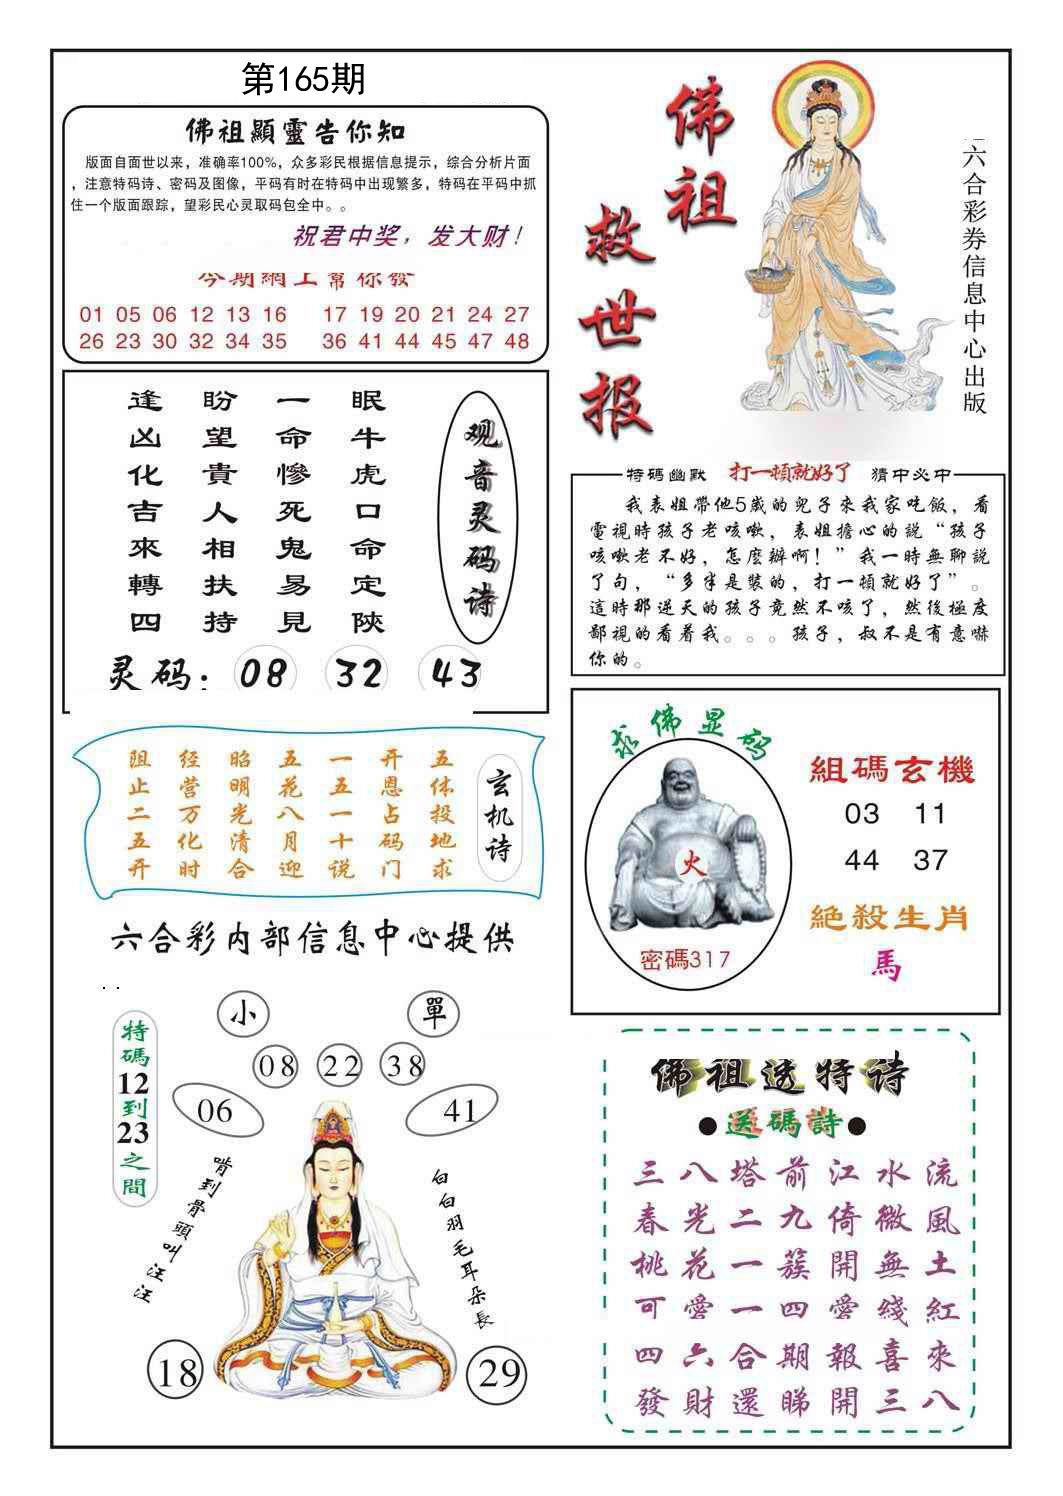 第165期
佛祖顯靈告你知
版面自面世以来，准确率100%，众多彩民根据信息提示，综合分析片面
，注意特码诗、密码及图像，平码有时在特码中出现繁多，特码在平码中抓
住一个版面跟踪，望彩民心灵取码包全中。。
祝君中奖，发大财！
今期網上幫你發
01 05 06 12 13 16 17 19 20 21 24 27
26 23 30 32 34 35 36 41 44 45 47 48
佛祖
救世报
六合彩券信息中心出版
观音灵码诗
眠牛虎口命定陝
一命慘死鬼易見
盼望貴人相扶持
逢凶化吉來轉四
灵码：08 32 43
特碼幽默 打一頓就好了 猜中必中
我表姐帶他5嵗的兒子來我家吃飯，看
電視時孩子老咳嗽，表姐擔心的説“孩子
咳嗽老不好，怎麽辦啊！”我一時無聊説
了句，“多半是裝的，打一頓就好了”。
這時那逆天的孩子竟然不咳了，然後極度
鄙視的看着我。。。孩子，叔不是有意嚇
你的。
玄机诗
五体投地求
开恩占码门
一五一十说
五花八月迎
昭明光清合
经营万化时
阻止二五开
求佛显码
火
密碼317
組碼玄機
03 11
44 37
絕殺生肖
馬
六合彩内部信息中心提供
小 單
08 22 38
06 41
特碼12到23之間
啃到骨頭叫汪汪
白白羽毛耳朵長
18 29
佛祖透特诗
●送碼詩●
三八塔前江水流
春光二九倚微風
桃花一簇開無土
可愛一四愛綫紅
四六合期報喜來
發財還睇開三八